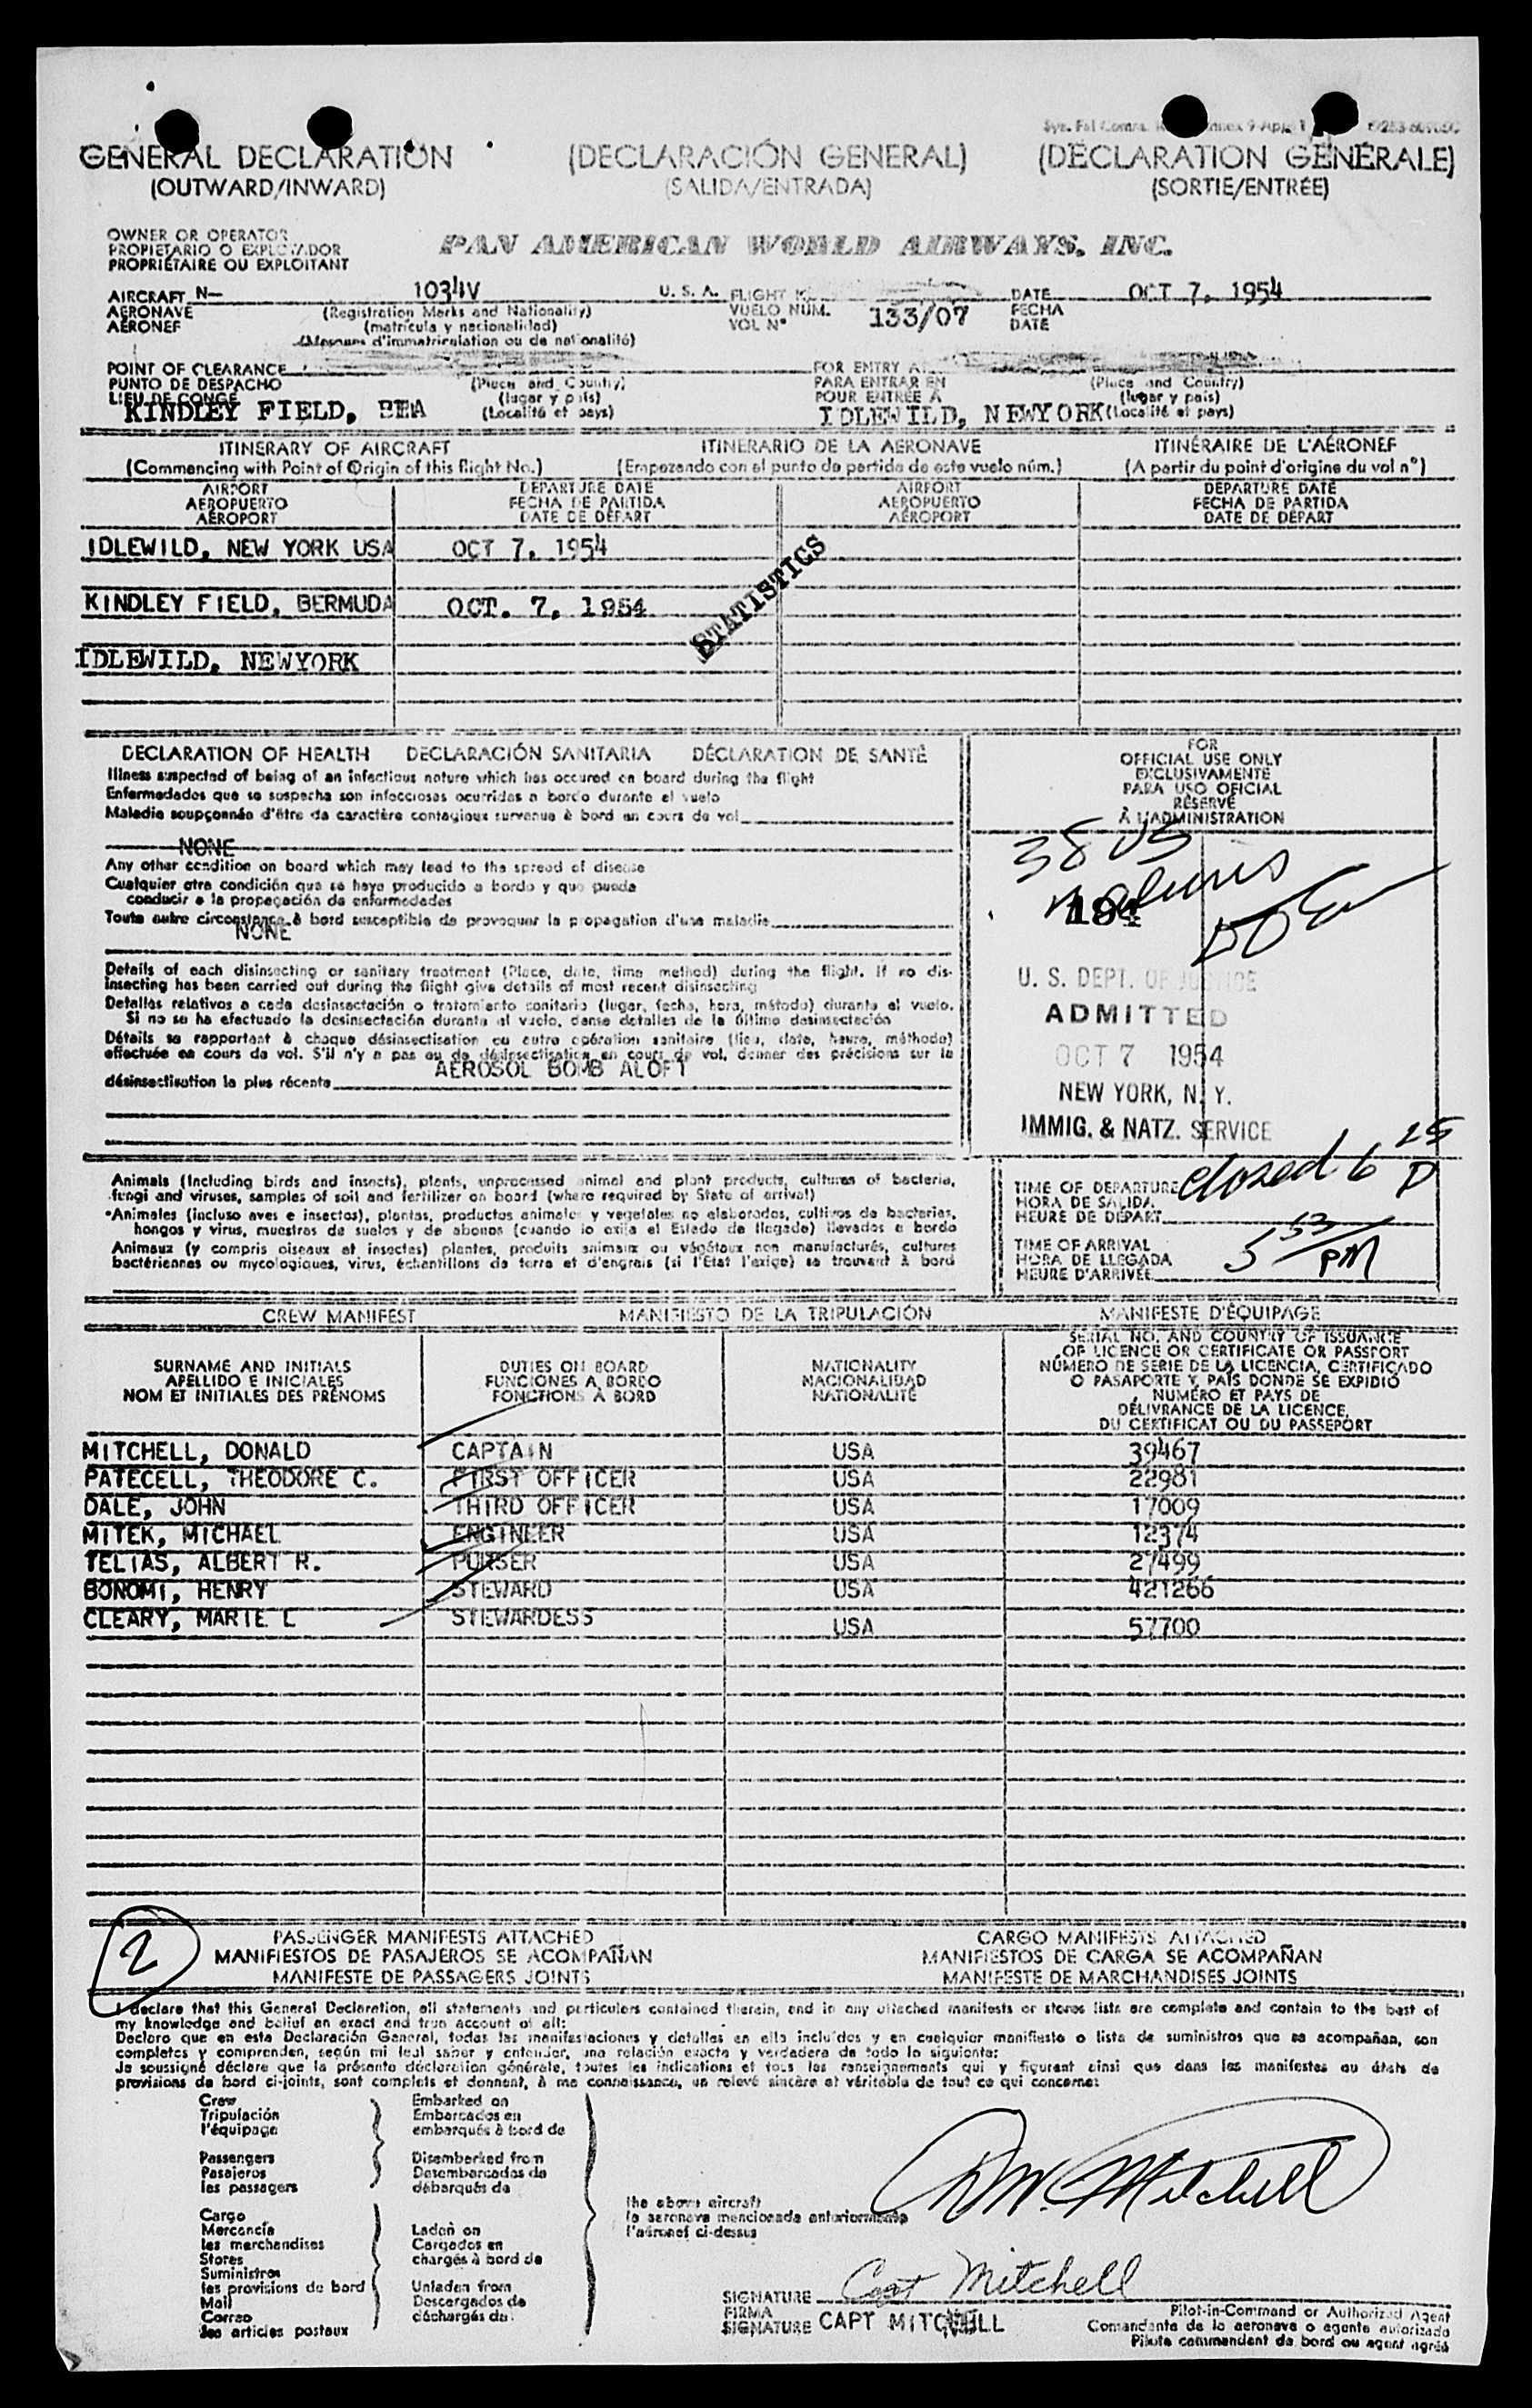 GENERAL DECLARATION (DECLARACIÓN GENERAL) (DÉCLARATION GÉNÉRALE)
(OUTWARD/INWARD) (SALIDA/ENTRADA) (SORTIE/ENTRÉE)
OWNER OR OPERATOR
PROPIETARIO O EXPLOTADOR
PROPRIÉTAIRE OU EXPLOITANT
PAN AMERICAN WORLD AIRWAYS, INC.
AIRCRAFT N— 1034V U. S. A.
AERONAVE (Registration Marks and Nationality)
AÉRONEF (matrícula y nacionalidad)
(Marques d'immatriculation ou de nationalité)
FLIGHT N
VUELO NÚM. 133/07
VOL Nº
DATE OCT 7, 1954
FECHA
DATE
POINT OF CLEARANCE
PUNTO DE DESPACHO (Place and Country)
LIEU DE CONGÉ (lugar y país)
KINDLEY FIELD, BDA (Localité et pays)
FOR ENTRY AT
PARA ENTRAR EN (Place and Country)
POUR ENTRÉE À (lugar y país)
IDLEWILD, NEWYORK (Localité et pays)
ITINERARY OF AIRCRAFT ITINERARIO DE LA AERONAVE ITINÉRAIRE DE L'AÉRONEF
(Commencing with Point of Origin of this flight No.) (Empezando con el punto de partida de este vuelo núm.) (A partir du point d'origine du vol nº)
AIRPORT DEPARTURE DATE AIRPORT DEPARTURE DATE
AEROPUERTO FECHA DE PARTIDA AEROPUERTO FECHA DE PARTIDA
AÉROPORT DATE DE DÉPART AÉROPORT DATE DE DÉPART
IDLEWILD, NEW YORK USA OCT 7, 1954
KINDLEY FIELD, BERMUDA OCT. 7, 1954
IDLEWILD, NEWYORK
STATISTICS
DECLARATION OF HEALTH DECLARACIÓN SANITARIA DÉCLARATION DE SANTÉ
Illness suspected of being of an infectious nature which has occured on board during the flight
Enfermedades que se sospecha son infecciosas ocurridas a bordo durante el vuelo
Maladie soupçonnée d'être de caractère contagieux survenue à bord en cours de vol
NONE
Any other condition on board which may lead to the spread of disease
Cualquier otra condición que se haya producido a bordo y que pueda
conducir a la propagación de enfermedades
Toute autre circonstance à bord susceptible de provoquer la propagation d'une maladie
NONE
Details of each disinsecting or sanitary treatment (Place, date, time method) during the flight. If no dis-
insecting has been carried out during the flight give details of most recent disinsecting
Detalles relativos a cada desinsectación o tratamiento sanitario (lugar, fecha, hora, método) durante el vuelo.
Si no se ha efectuado la desinsectación durante el vuelo, dense detalles de la última desinsectación
Détails se rapportant à chaque désinsectisation ou autre opération sanitaire (lieu, date, heure, méthode)
effectuée en cours de vol. S'il n'y a pas eu de désinsectisation en cours de vol, donner des précisions sur la
désinsectisation la plus récente
AEROSOL BOMB ALOFT
FOR
OFFICIAL USE ONLY
EXCLUSIVAMENTE
PARA USO OFICIAL
RÉSERVÉ
À L'ADMINISTRATION
38 US
U. S. DEPT. OF JUSTICE
ADMITTED
OCT 7 1954
NEW YORK, N. Y.
IMMIG. & NATZ. SERVICE
Animals (Including birds and insects), plants, unprocessed animal and plant products, cultures of bacteria,
fungi and viruses, samples of soil and fertilizer on board (where required by State of arrival)
Animales (incluso aves e insectos), plantas, productos animales y vegetales no elaborados, cultivos de bacterias,
hongos y virus, muestras de suelos y de abonos (cuando lo exija el Estado de llegada) llevados a bordo
Animaux (y compris oiseaux et insectes) plantes, produits animaux ou végétaux non manufacturés, cultures
bactériennes ou mycologiques, virus, échantillons de terre et d'engrais (si l'Etat l'exige) se trouvant à bord
TIME OF DEPARTURE closed 6 25 P
HORA DE SALIDA
HEURE DE DÉPART
TIME OF ARRIVAL 5 53 PM
HORA DE LLEGADA
HEURE D'ARRIVÉE
CREW MANIFEST MANIFIESTO DE LA TRIPULACIÓN MANIFESTE D'ÉQUIPAGE
SURNAME AND INITIALS
APELLIDO E INICIALES
NOM ET INITIALES DES PRÉNOMS
DUTIES ON BOARD
FUNCIONES A BORDO
FONCTIONS À BORD
NATIONALITY
NACIONALIDAD
NATIONALITÉ
SERIAL NO. AND COUNTRY OF ISSUANCE
OF LICENCE OR CERTIFICATE OR PASSPORT
NÚMERO DE SERIE DE LA LICENCIA, CERTIFICADO
O PASAPORTE Y PAÍS DONDE SE EXPIDIÓ
NUMÉRO ET PAYS DE
DÉLIVRANCE DE LA LICENCE,
DU CERTIFICAT OU DU PASSEPORT
MITCHELL, DONALD CAPTAIN USA 39467
PATECELL, THEODORE C. FIRST OFFICER USA 22981
DALE, JOHN THIRD OFFICER USA 17009
MITEK, MICHAEL ENGINEER USA 12374
TELIAS, ALBERT R. PURSER USA 27499
BONOMI, HENRY STEWARD USA 421266
CLEARY, MARIE L STEWARDESS USA 57700
2
PASSENGER MANIFESTS ATTACHED CARGO MANIFESTS ATTACHED
MANIFIESTOS DE PASAJEROS SE ACOMPAÑAN MANIFIESTOS DE CARGA SE ACOMPAÑAN
MANIFESTE DE PASSAGERS JOINTS MANIFESTE DE MARCHANDISES JOINTS
I declare that this General Declaration, all statements and particulars contained therein, and in any attached manifests or stores lists are complete and contain to the best of
my knowledge and belief an exact and true account of all:
Declaro que en esta Declaración General, todas las manifestaciones y detalles en ella incluídos y en cualquier manifiesto o lista de suministros que se acompañan, son
completos y comprenden, según mi leal saber y entender, una relación exacta y verdadera de todo lo siguiente:
Je soussigné déclare que la présente déclaration générale, toutes les indications et tous les renseignements qui y figurent ainsi que dans les manifestes ou états de
provisions de bord ci-joints, sont complets et donnent, à ma connaissance, un relevé sincère et véritable de tout ce qui concerne:
Crew Embarked on
Tripulación Embarcados en
l'équipage embarqués à bord de
Passengers Disembarked from
Pasajeros Desembarcados de
les passagers débarqués de
Cargo
Mercancía Laden on
les marchandises Cargados en
Stores chargés à bord de
Suministros
les provisions de bord Unladen from
Mail Descargados de
Correo déchargés de
les articles postaux
the above aircraft
la aeronave mencionada anteriormente
l'aéronef ci-dessus
DW. Mitchell
SIGNATURE Capt Mitchell
FIRMA
SIGNATURE CAPT MITCHELL
Pilot-in-Command or Authorized Agent
Comandante de la aeronave o agente autorizado
Pilote commandant de bord ou agent agréé